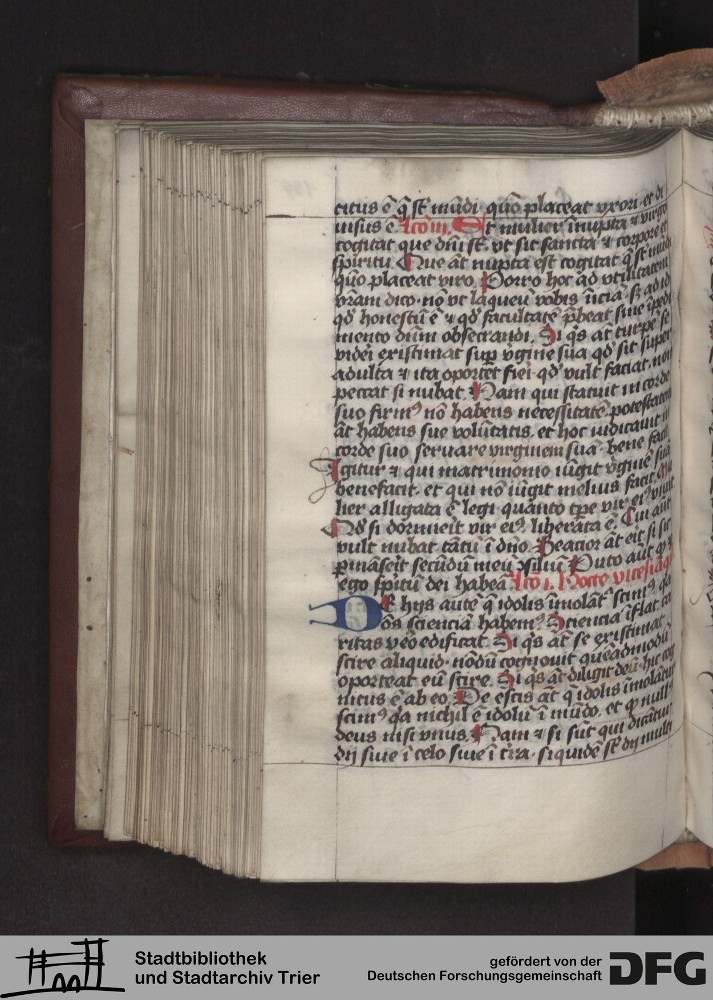 citus ē q̄ st̄ mūdi. quō placeat vxori. et di
uisus ē. Lc̄o iij. Et mulier īnupta ⁊ virgo
cogitat que dn̄i st̄. vt sit sancta ⁊ corpore et
spiritu. Que āt nupta est cogitat q̄ st̄ mūdi
quō placeat viro. Porro hoc ad vtilitatem
vr̄am dico. nō vt laqueū vobis īiciā. sȝ ad id
qd̄ honestū ē ⁊ qd̄ facultatē p̄beat sine īpedi
mento dūm obsecrandi. Si q̄s āt turpē se
videri existimat sup v̄gine sua qd̄ sit super
adulta ⁊ ita oportet fieri. qd̄ vult faciat. non
peccat si nubat. Nam qui statuit in corde
suo firmꝰ nō habens necessitatē. potestatem
āt habens sue volūtatis. et hoc iudicauit in
corde suo seruare virginem suā. bene facit
Igitur ⁊ qui matrimonio iūgit v̄ginē suā
benefacit. et qui nō iūgit melius facit. Mu
lier alligata ē legi quanto tp̄e vir eiꝰ viuit
Qd̄ si dormierit vir eiꝰ liberata ē. Cui aūt
vult nubat tātū ī dn̄o. Beatior āt erit si sic
ꝑmāserit secūdū meū ꝯsiliū. Puto aūt qꝫ ⁊
ego spitū dei habeā. Lc̄o i. Nocte vicesīaq
DE hijs autē q̄ idolis īmolāt̄ scimꝰ qa
oēs sciencia habemꝰ. Sciencia īflat. ca
ritas vēo edificat. Si q̄s āt se existimat
scire aliquid. nōdū cognouit quēadmodū
oporteat eū scire. Si q̄s āt diligit deū. hic cog
nitus ē ab eo. De escis āt q̄ idolis īmolātur
scimꝰ qa nichil ē idolū ī mūdo. et qꝫ nullꝰ
deus nisi vnus. Nam ⁊ si sūt qui dicātur
dij siue ī celo siue ī t̄ra. siquidē st̄ dij multi
Stadtbibliothek
und Stadtarchiv Trier
gefördert von der
Deutschen Forschungsgemeinschaft
DFG